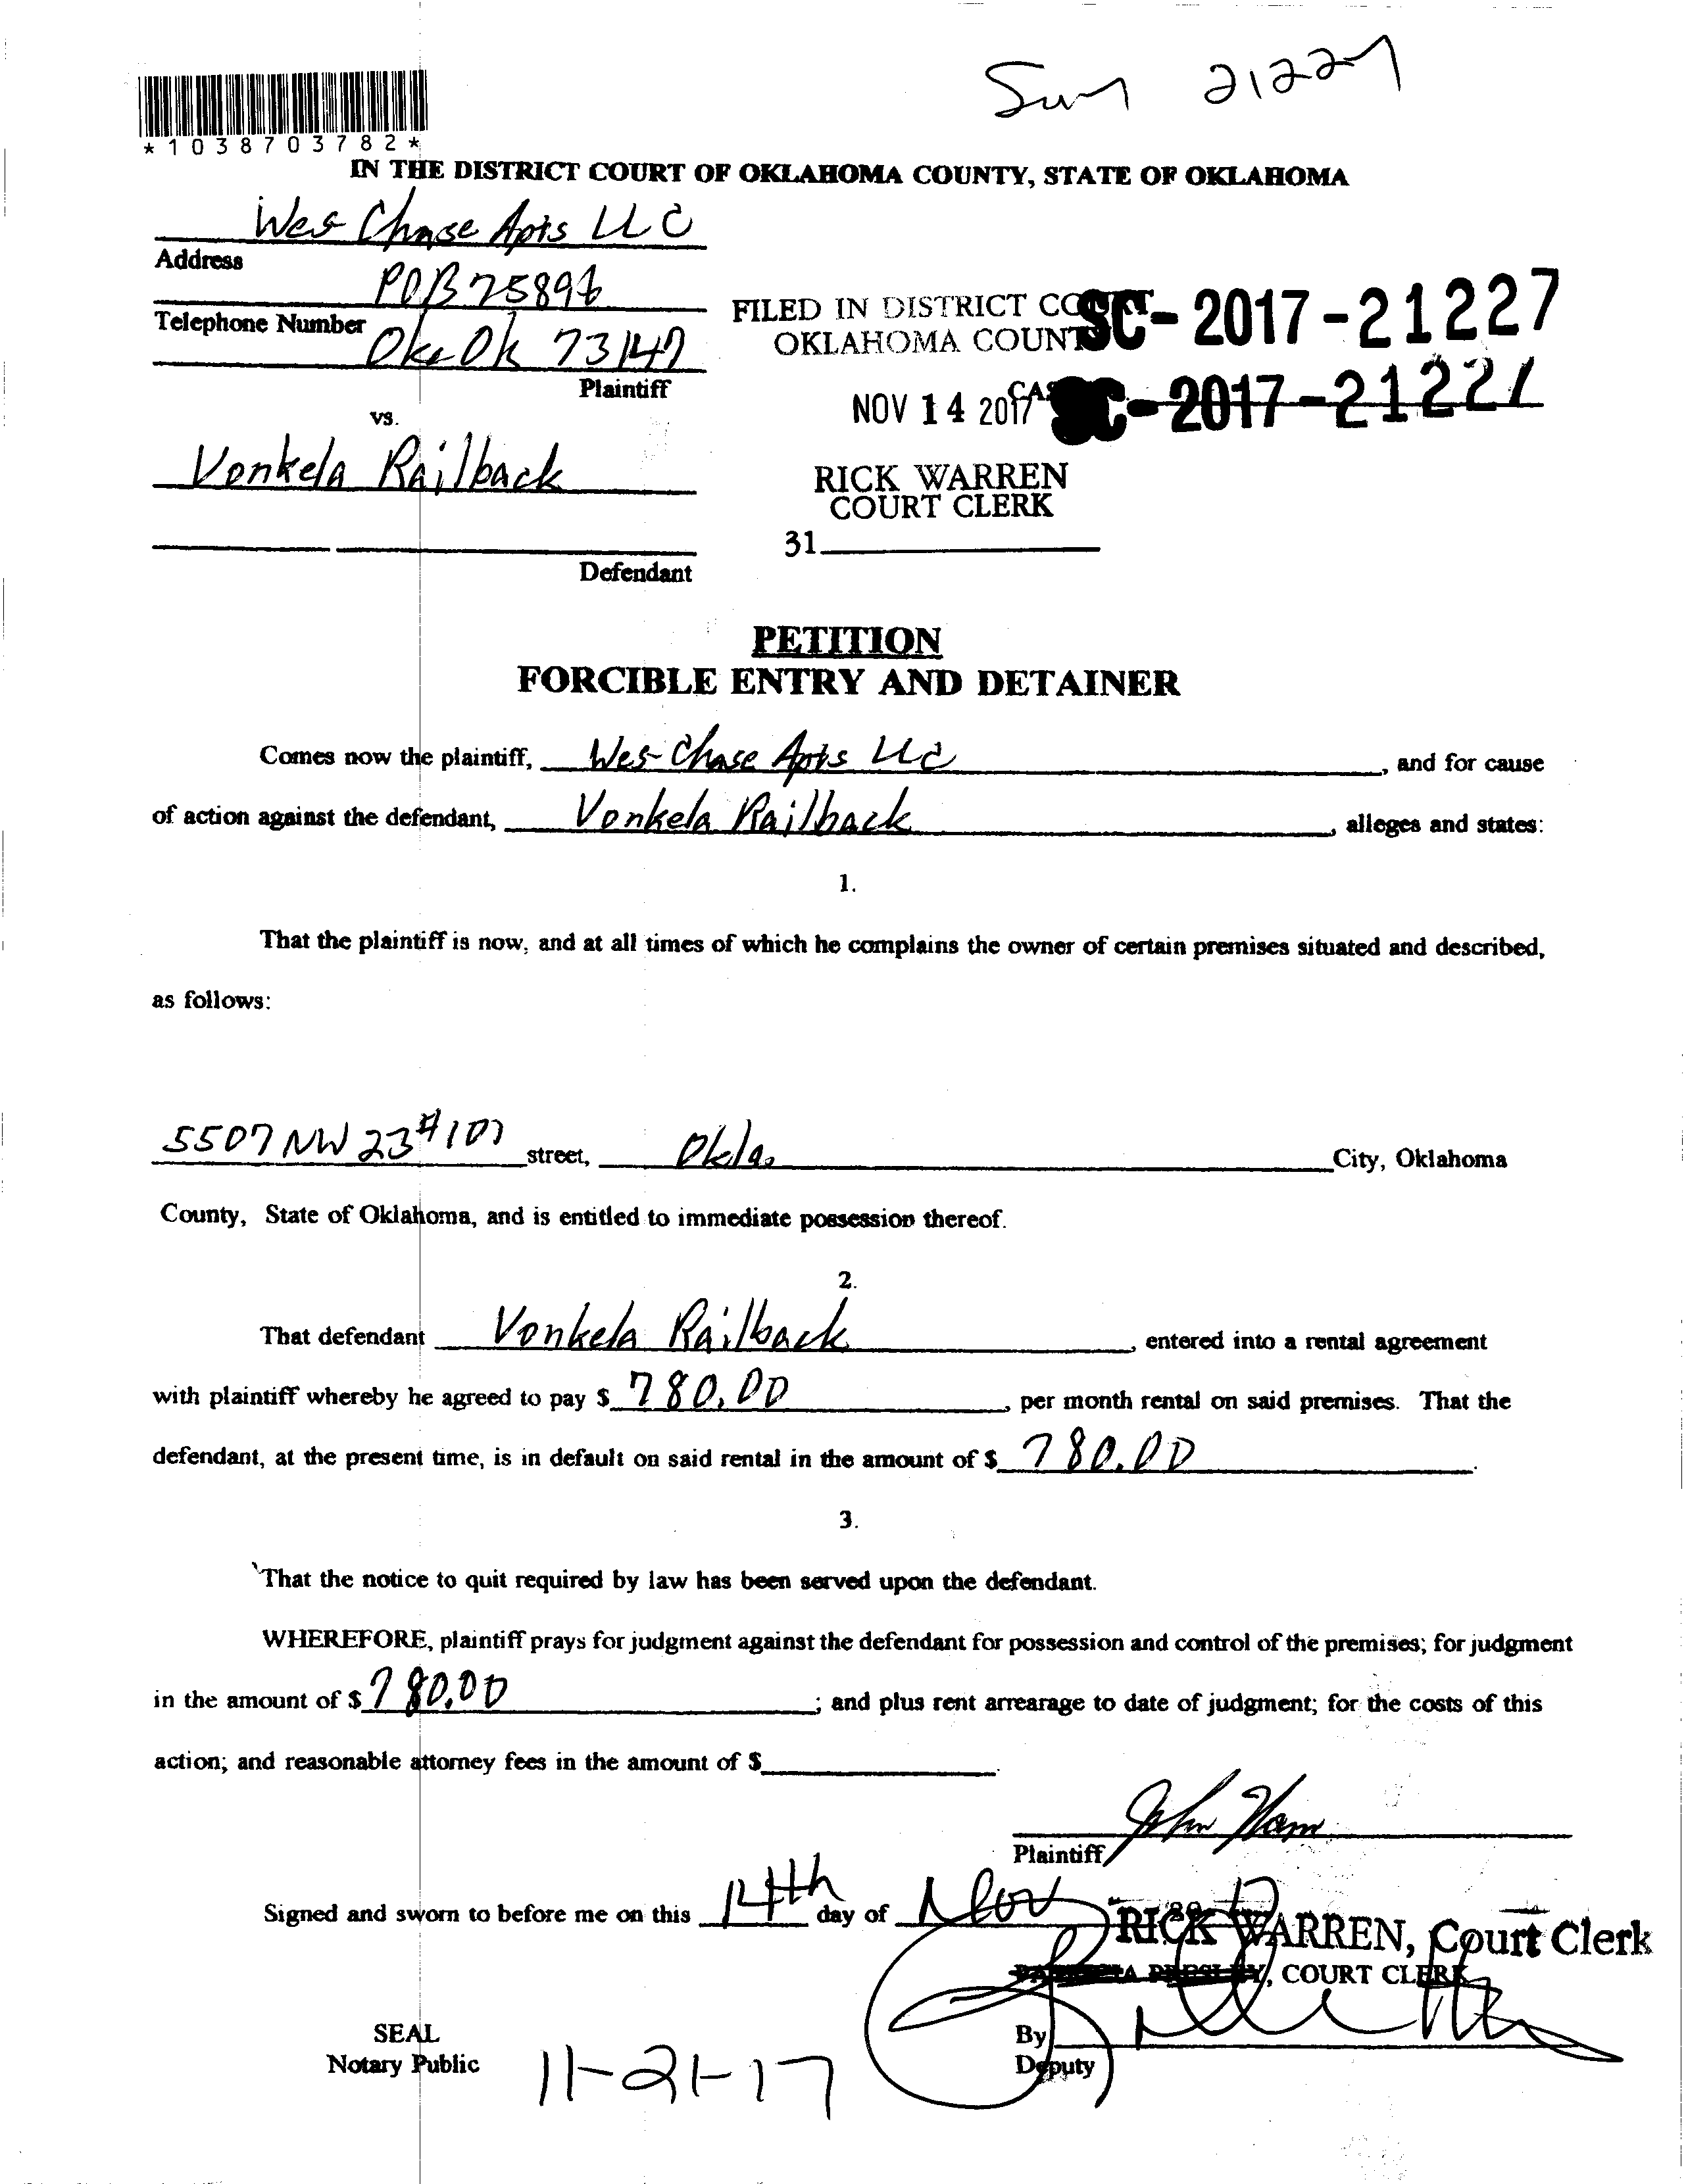 Sm 21227
*1038703782*
IN THE DISTRICT COURT OF OKLAHOMA COUNTY, STATE OF OKLAHOMA
Wes Chase Apts LLC
Address
POB 75896
Telephone Number
Okc Ok 73147
Plaintiff
FILED IN DISTRICT
OKLAHOMA COUNT
SC-2017-21227
NOV 14 2017
CAS
SC-2017-21227
vs.
Vonkela Railback
RICK WARREN
COURT CLERK
31
Defendant
PETITION
FORCIBLE ENTRY AND DETAINER
Comes now the plaintiff, Wes-Chase Apts LLC, and for cause
of action against the defendant, Vonkela Railback, alleges and states:
1.
That the plaintiff is now, and at all times of which he complains the owner of certain premises situated and described,
as follows:
5507 NW 23 #107 street, Okla. City, Oklahoma
County, State of Oklahoma, and is entitled to immediate possession thereof.
2.
That defendant Vonkela Railback, entered into a rental agreement
with plaintiff whereby he agreed to pay $ 780.00, per month rental on said premises. That the
defendant, at the present time, is in default on said rental in the amount of $ 780.00.
3.
That the notice to quit required by law has been served upon the defendant.
WHEREFORE, plaintiff prays for judgment against the defendant for possession and control of the premises; for judgment
in the amount of $ 780.00; and plus rent arrearage to date of judgment; for the costs of this
action; and reasonable attorney fees in the amount of $
John Ham
Plaintiff
Signed and sworn to before me on this 14th day of Nov 2017
RICK WARREN, Court Clerk
PATRICIA PRESLEY, COURT CLERK
SEAL
Notary Public
11-21-17
By
Deputy